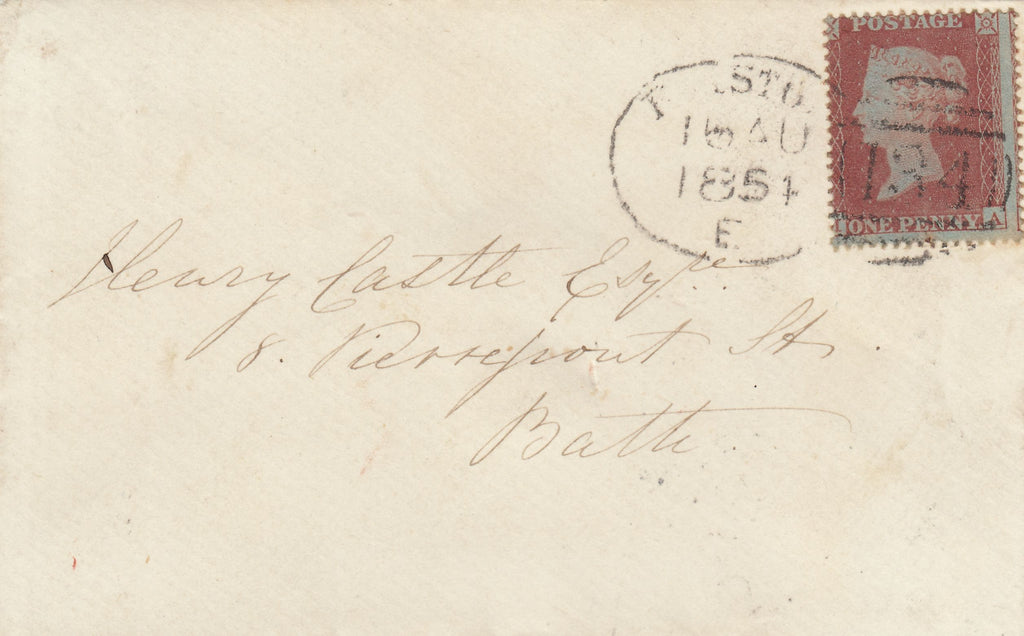 POSTAGE
15 AU
1854
E
134
ONE PENNY A
Henry Castle Esqre
8. Pierrepont St.
Bath